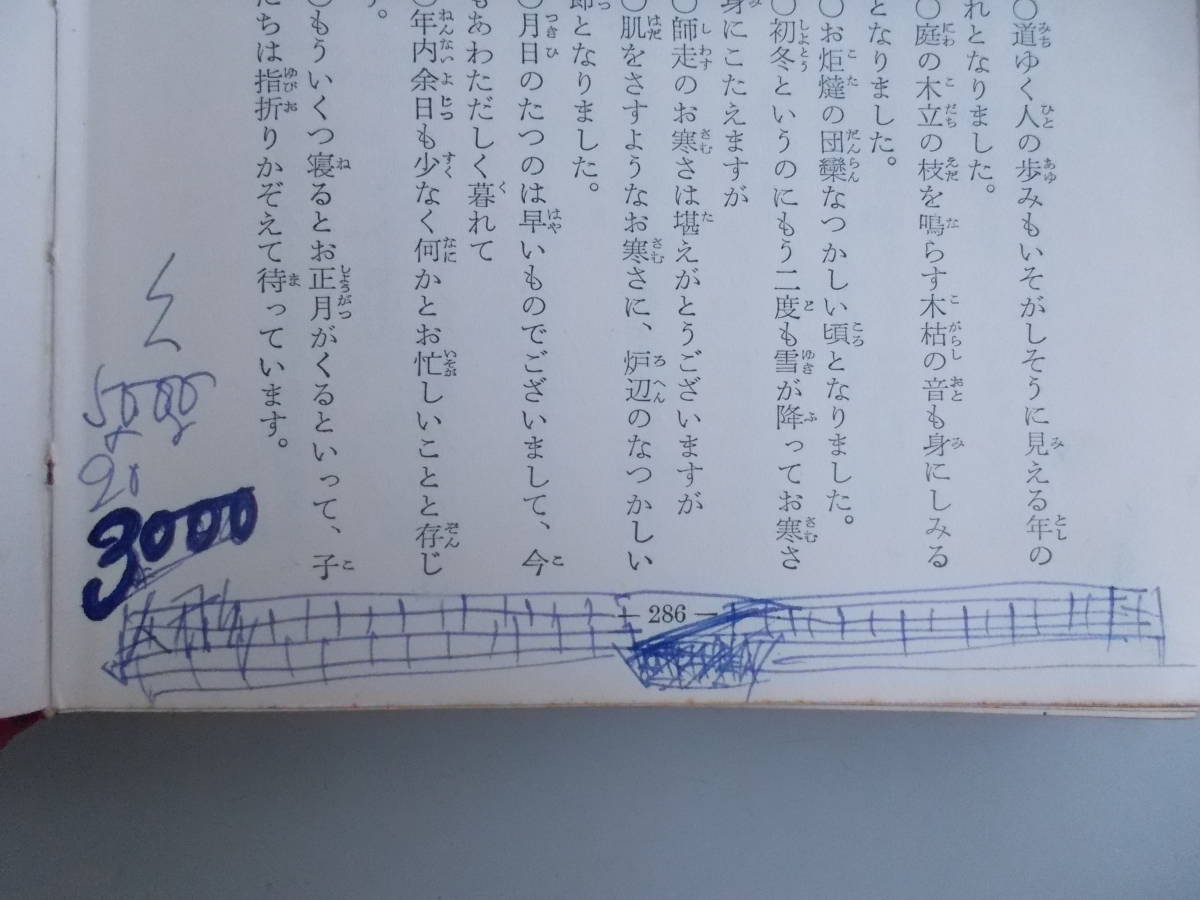 ○道ゆく人の歩みもいそがしそうに見える年の
れとなりました。
○庭の木立の枝を鳴らす木枯の音も身にしみる
となりました。
○お炬燵の団欒なつかしい頃となりました。
○初冬というのにもう二度も雪が降ってお寒さ
身にこたえますが
○師走のお寒さは堪えがとうございますが
○肌をさすようなお寒さに、炉辺のなつかしい
節となりました。
○月日のたつのは早いものでございまして、今
もあわただしく暮れて
○年内余日も少なく何かとお忙しいことと存じ
す。
○もういくつ寝るとお正月がくるといって、子
たちは指折りかぞえて待っています。
3000
— 286 —